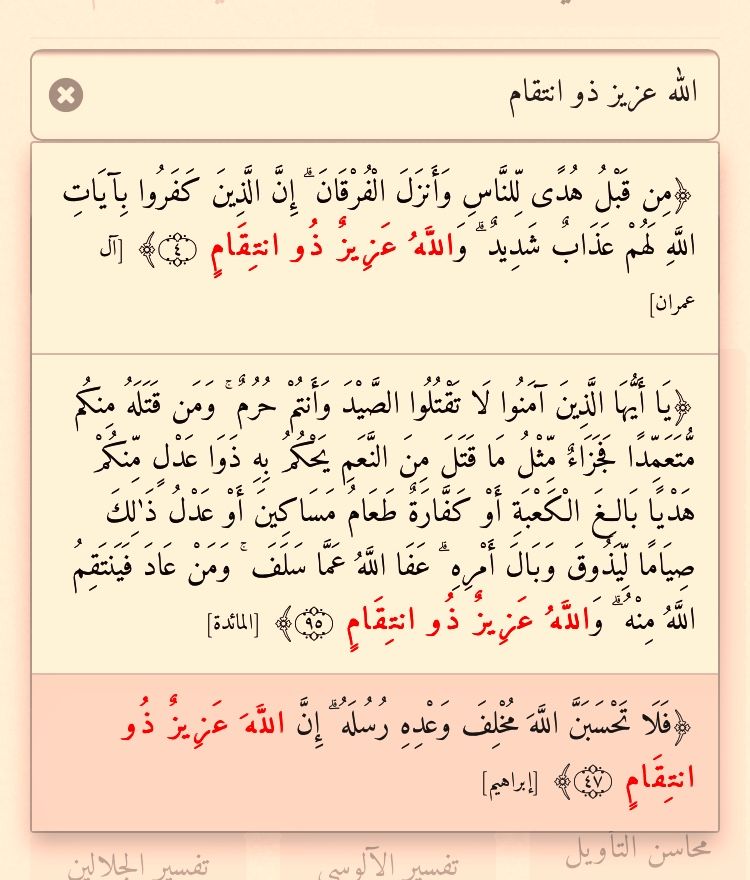 الله عزيز ذو انتقام
﴿مِن قَبْلُ هُدًى لِّلنَّاسِ وَأَنزَلَ الْفُرْقَانَ ۗ إِنَّ الَّذِينَ كَفَرُوا بِآيَاتِ
اللَّهِ لَهُمْ عَذَابٌ شَدِيدٌ ۗ وَاللَّهُ عَزِيزٌ ذُو انتِقَامٍ ﴿٤﴾ [آل
عمران]
﴿يَا أَيُّهَا الَّذِينَ آمَنُوا لَا تَقْتُلُوا الصَّيْدَ وَأَنتُمْ حُرُمٌ ۚ وَمَن قَتَلَهُ مِنكُم
مُّتَعَمِّدًا فَجَزَاءٌ مِّثْلُ مَا قَتَلَ مِنَ النَّعَمِ يَحْكُمُ بِهِ ذَوَا عَدْلٍ مِّنكُمْ
هَدْيًا بَالِغَ الْكَعْبَةِ أَوْ كَفَّارَةٌ طَعَامُ مَسَاكِينَ أَوْ عَدْلُ ذَٰلِكَ
صِيَامًا لِّيَذُوقَ وَبَالَ أَمْرِهِ ۗ عَفَا اللَّهُ عَمَّا سَلَفَ ۚ وَمَنْ عَادَ فَيَنتَقِمُ
اللَّهُ مِنْهُ ۗ وَاللَّهُ عَزِيزٌ ذُو انتِقَامٍ ﴿٩٥﴾ [المائدة]
﴿فَلَا تَحْسَبَنَّ اللَّهَ مُخْلِفَ وَعْدِهِ رُسُلَهُ ۗ إِنَّ اللَّهَ عَزِيزٌ ذُو
انتِقَامٍ ﴿٤٧﴾ [إبراهيم]
محاسن التأويل تفسير الآلوسي تفسير الجلالين